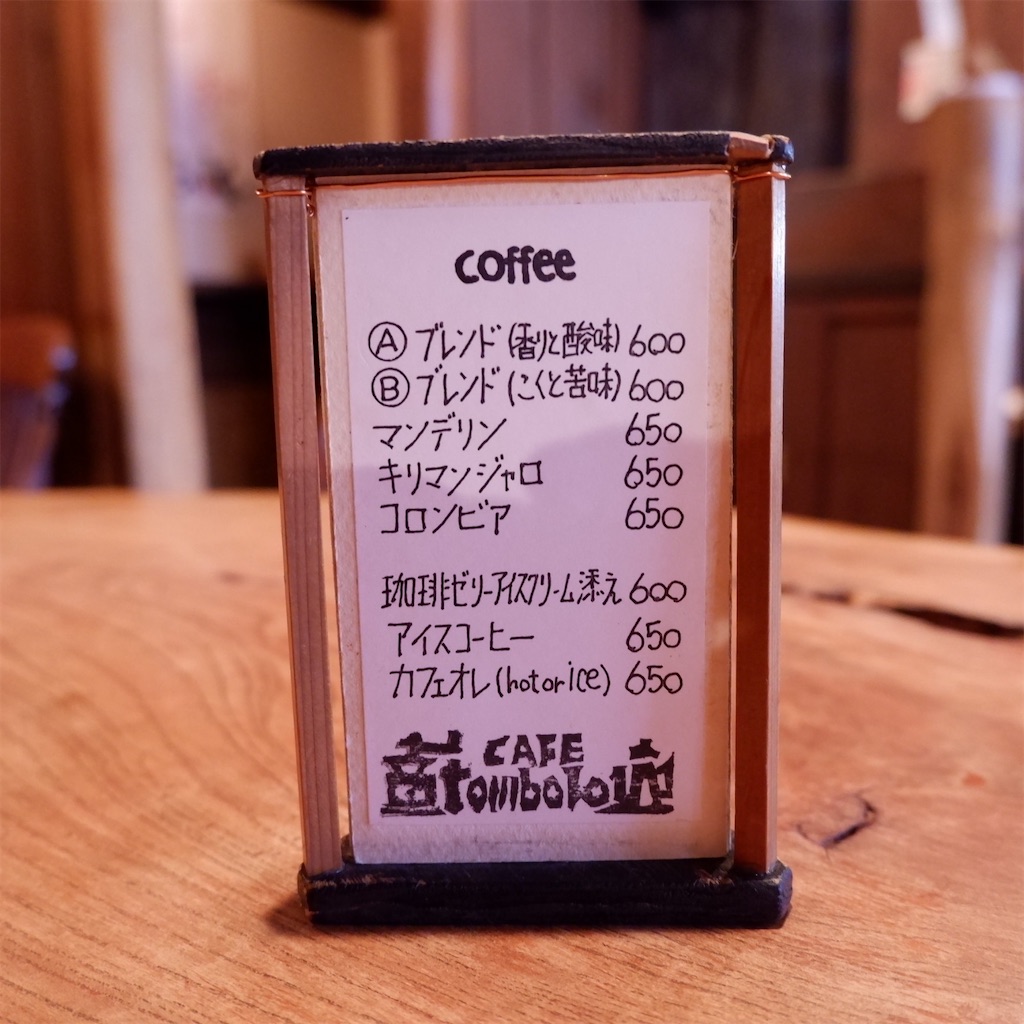 coffee
Ⓐ ブレンド (香りと酸味) 600
Ⓑ ブレンド (こくと苦味) 600
マンデリン 650
キリマンジャロ 650
コロンビア 650
珈琲ゼリーアイスクリーム添え 600
アイスコーヒー 650
カフェオレ (hot or ice) 650
CAFE
tombolo